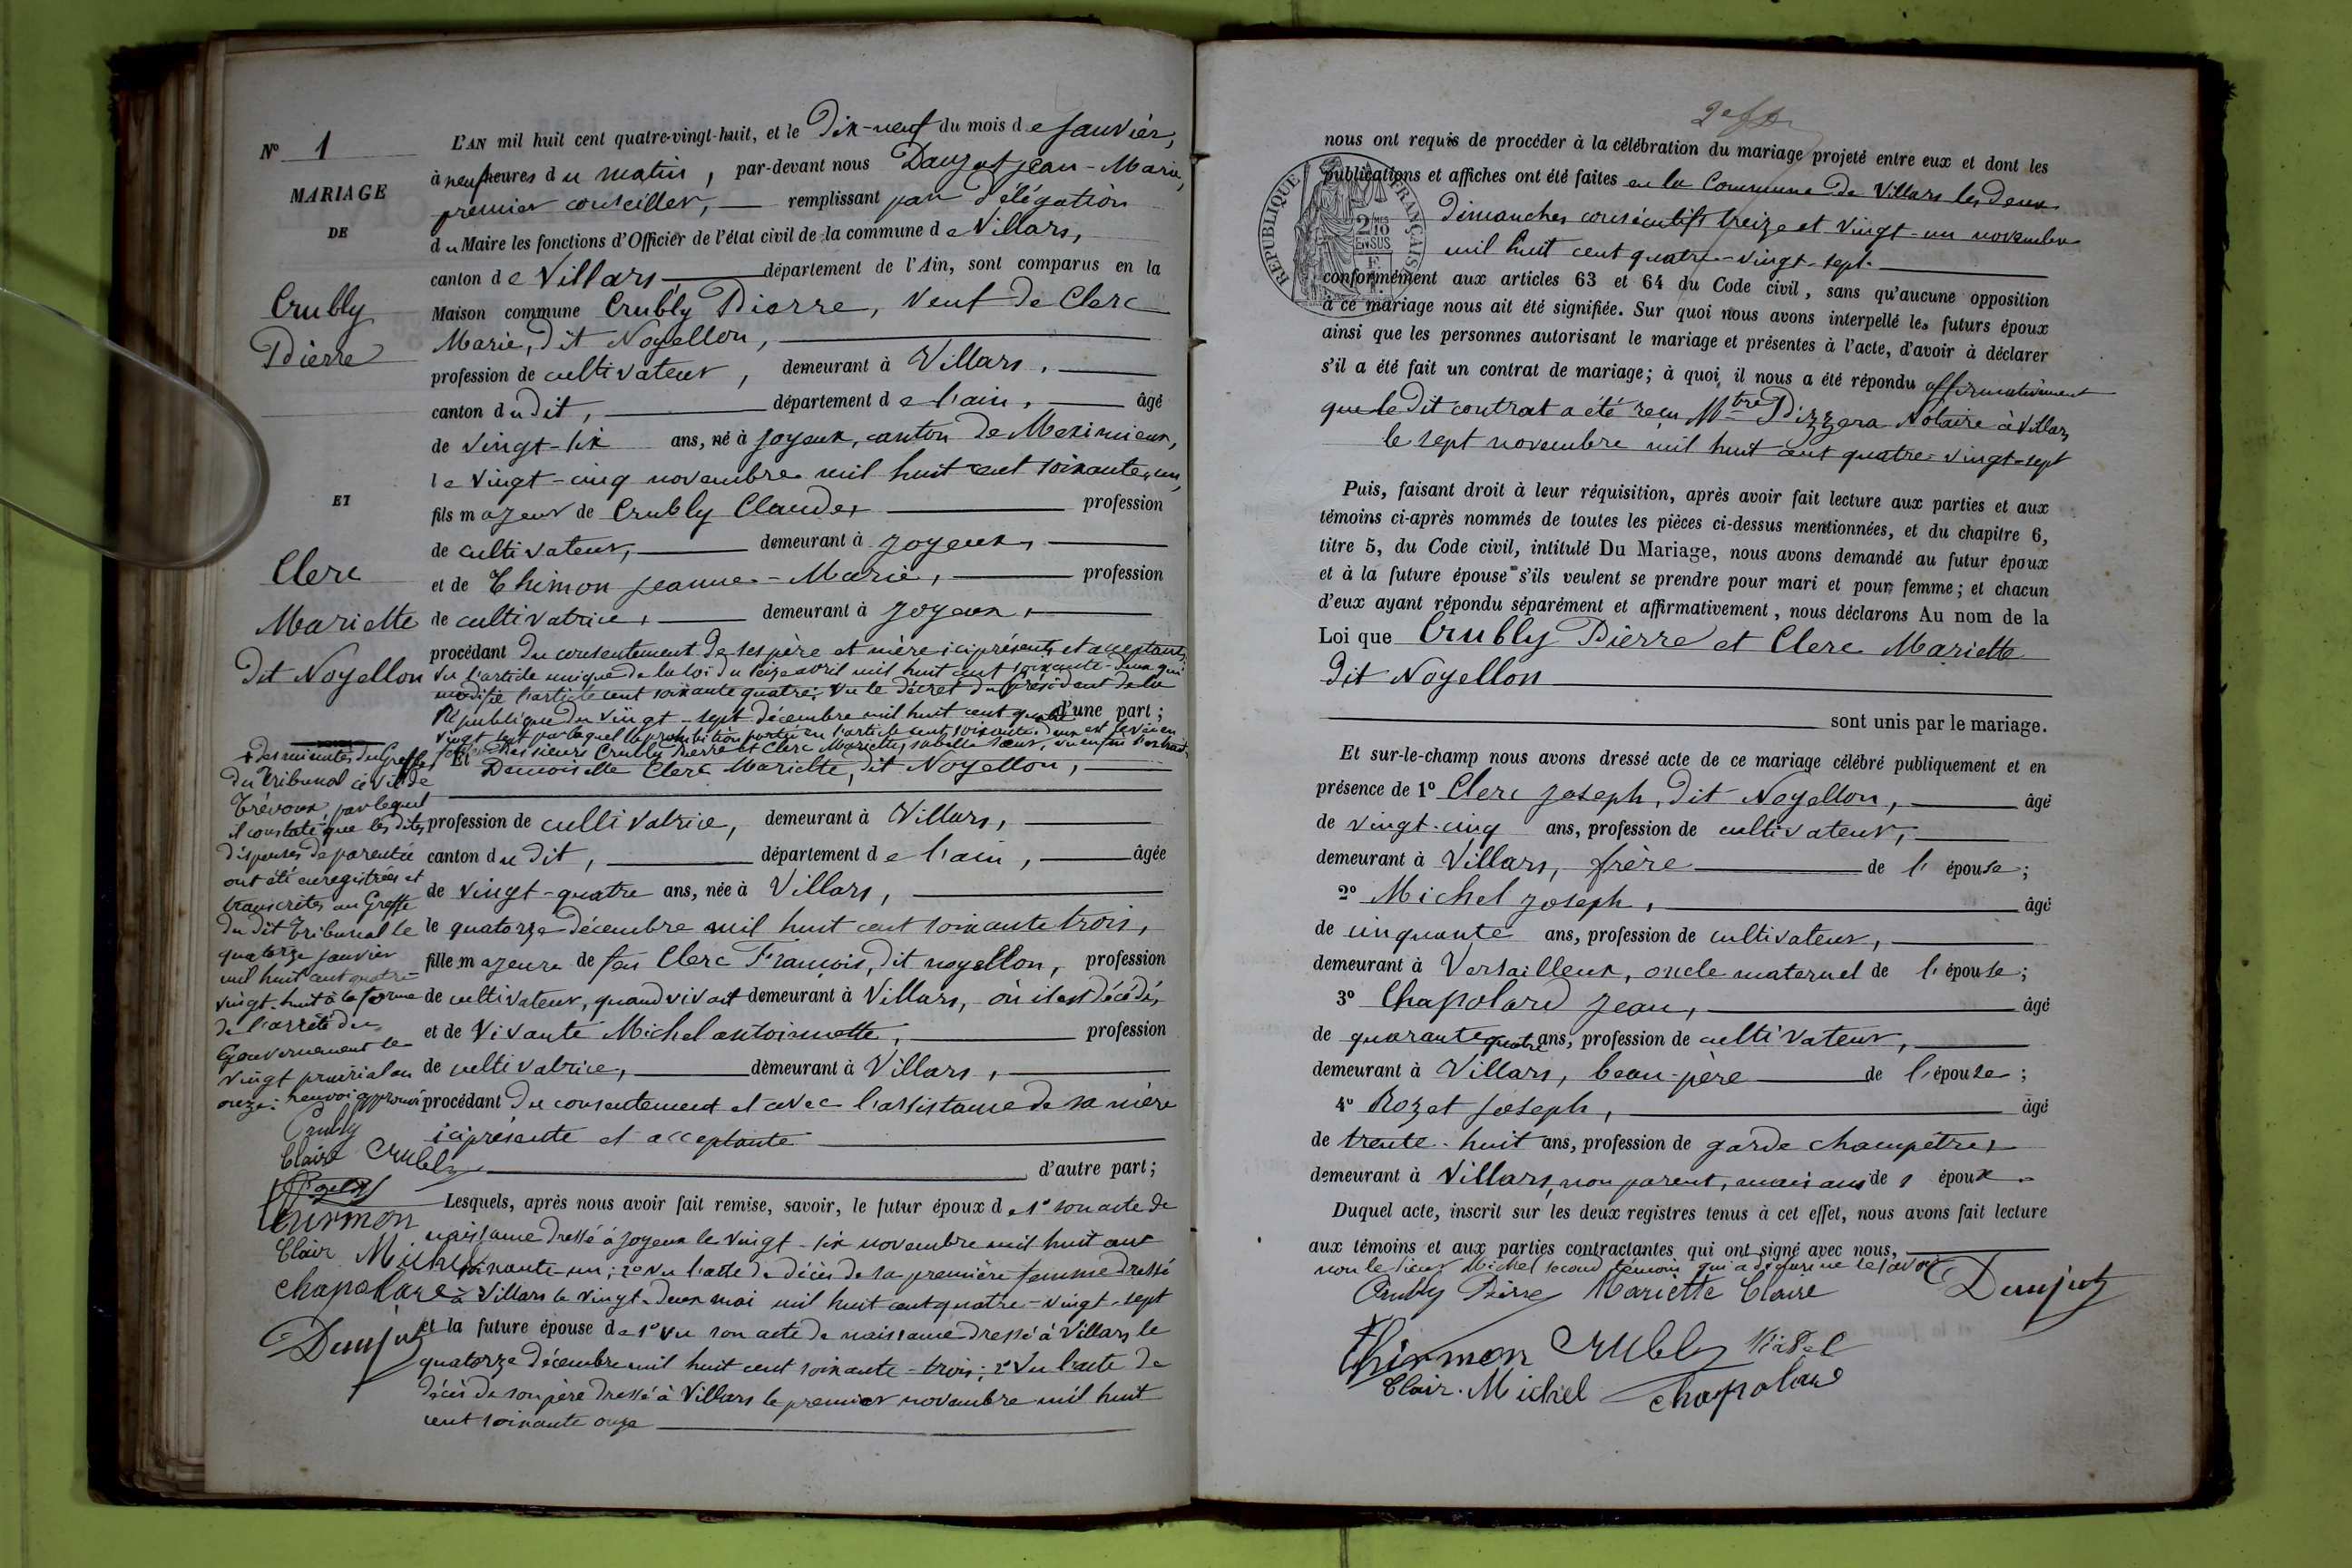 N° 1
MARIAGE
DE
Crubly
Pierre
ET
Clerc
Mariette
dit Noyellon
L'AN mil huit cent quatre-vingt-huit, et le Dix-neuf du mois de Janvier,
à neuf heures du matin, par-devant nous Jean-Marie,
premier conseiller, remplissant par délégation
du Maire les fonctions d'Officier de l'état civil de la commune de Villars,
canton de Villars, département de l'Ain, sont comparus en la
Maison commune Crubly Pierre, Veuf de Clerc
Marie, dit Noyellon,
profession de cultivateur, demeurant à Villars,
canton du dit, département de l'ain, âgé
de vingt-six ans, né à Joyeux, canton de Meximieux,
le vingt-cinq novembre mil huit cent soixante-un,
fils majeur de Crubly Claude, profession
de cultivateur, demeurant à Joyeux,
et de Thimon Jeanne-Marie, profession
de cultivatrice, demeurant à Joyeux,
procédant du consentement de ses père et mère ici présents et acceptants,
Vu l'article unique de la loi du seize avril mil huit cent soixante-deux qui
modifie l'article cent soixante quatre; Vu le décret du président de la
République du vingt-sept décembre mil huit cent quatre d'une part;
vingt sept par lequel la prohibition portée en l'article cent soixante-deux est levée en
Crubly Pierre et Clerc Mariette, sa belle sœur, vu enfin l'extrait
Et Demoiselle Clerc Mariette, dit Noyellon,
profession de cultivatrice, demeurant à Villars,
canton du dit, département de l'ain, âgée
de vingt-quatre ans, née à Villars,
le quatorze décembre mil huit cent soixante trois,
fille majeure de feu Clerc François, dit noyellon, profession
de cultivateur, quand vivait demeurant à Villars, où il est décédé,
et de Vivante Michel antoinette, profession
de cultivatrice, demeurant à Villars,
procédant du consentement et avec l'assistance de sa mère
ici présente et acceptante
d'autre part;
Lesquels, après nous avoir fait remise, savoir, le futur époux de 1° son acte de
naissance dressé à Joyeux le vingt-six novembre mil huit cent
soixante-un; 2° vu l'acte de décès de sa première femme dressé
à Villars le vingt-deux mai mil huit cent quatre-vingt-sept
et la future épouse de 1° vu son acte de naissance dressé à Villars le
quatorze décembre mil huit cent soixante-trois; 2° Vu l'acte de
décès de son père dressé à Villars le premier novembre mil huit
cent soixante onze
+ des minutes du Greffe
du Tribunal civil de
Trévoux, par lequel
il constate que les dites
dispenses de parenté
ont été enregistrées et
transcrites au Greffe
du dit Tribunal le
quatorze janvier
mil huit cent quatre-
vingt-huit à la forme
de l'arrêté du
Gouvernement le
vingt prairial an
onze: renvoi approuvé
Crubly
Claire Crubly
Rozet
Thirmon
Clair Michel
chapolard
nous ont requis de procéder à la célébration du mariage projeté entre eux et dont les
publications et affiches ont été faites en la Commune de Villars les deux
dimanches consécutifs treize et vingt-un novembre
mil huit cent quatre-vingt-sept.
RÉPUBLIQUE FRANÇAISE
2/10
EN SUS
conformément aux articles 63 et 64 du Code civil, sans qu'aucune opposition
à ce mariage nous ait été signifiée. Sur quoi nous avons interpellé les futurs époux
ainsi que les personnes autorisant le mariage et présentes à l'acte, d'avoir à déclarer
s'il a été fait un contrat de mariage; à quoi il nous a été répondu affirmativement
que le dit contrat a été reçu Mtre Pizzera Notaire à Villars
le sept novembre mil huit cent quatre-vingt-sept
Puis, faisant droit à leur réquisition, après avoir fait lecture aux parties et aux
témoins ci-après nommés de toutes les pièces ci-dessus mentionnées, et du chapitre 6,
titre 5, du Code civil, intitulé Du Mariage, nous avons demandé au futur époux
et à la future épouse s'ils veulent se prendre pour mari et pour femme; et chacun
d'eux ayant répondu séparément et affirmativement, nous déclarons Au nom de la
Loi que Crubly Pierre et Clerc Mariette
dit Noyellon
sont unis par le mariage.
Et sur-le-champ nous avons dressé acte de ce mariage célébré publiquement et en
présence de 1° Clerc Joseph, dit Noyellon, âgé
de vingt-cinq ans, profession de cultivateur,
demeurant à Villars, frère de l'épouse;
2° Michel Joseph, âgé
de cinquante ans, profession de cultivateur,
demeurant à Versailleux, oncle maternel de l'épouse;
3° Chapolard Jean, âgé
de quarante quatre ans, profession de cultivateur,
demeurant à Villars, beau-père de l'épouse;
4° Rozet Joseph, âgé
de trente-huit ans, profession de garde champêtre,
demeurant à Villars, non parent, mais ami de s époux.
Duquel acte, inscrit sur les deux registres tenus à cet effet, nous avons fait lecture
aux témoins et aux parties contractantes qui ont signé avec nous,
non le sieur Michel second témoin qui a déclaré ne le savoir
Crubly Pierre Mariette Claire
Thirmon Crubly
Clair. Michel chapolard